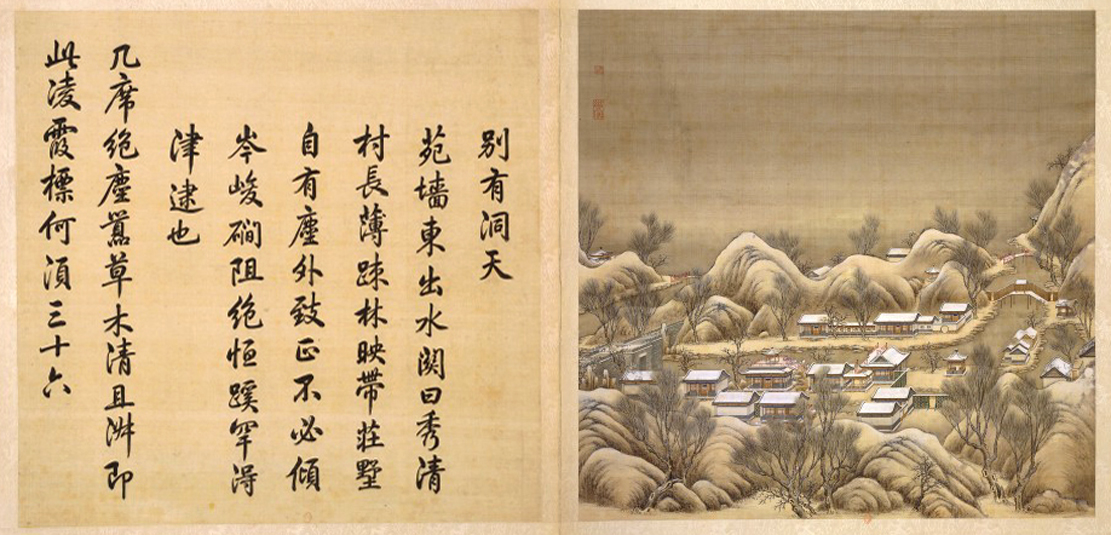 別有洞天
苑墻東出水関曰秀清
村長薄踈林映帶莊墅
自有塵外致正不必傾
岑峻磵阻絶恒蹊罕淂
津逮也
几席絶塵嚣草木清且淑即
此凌霞標何湏三十六